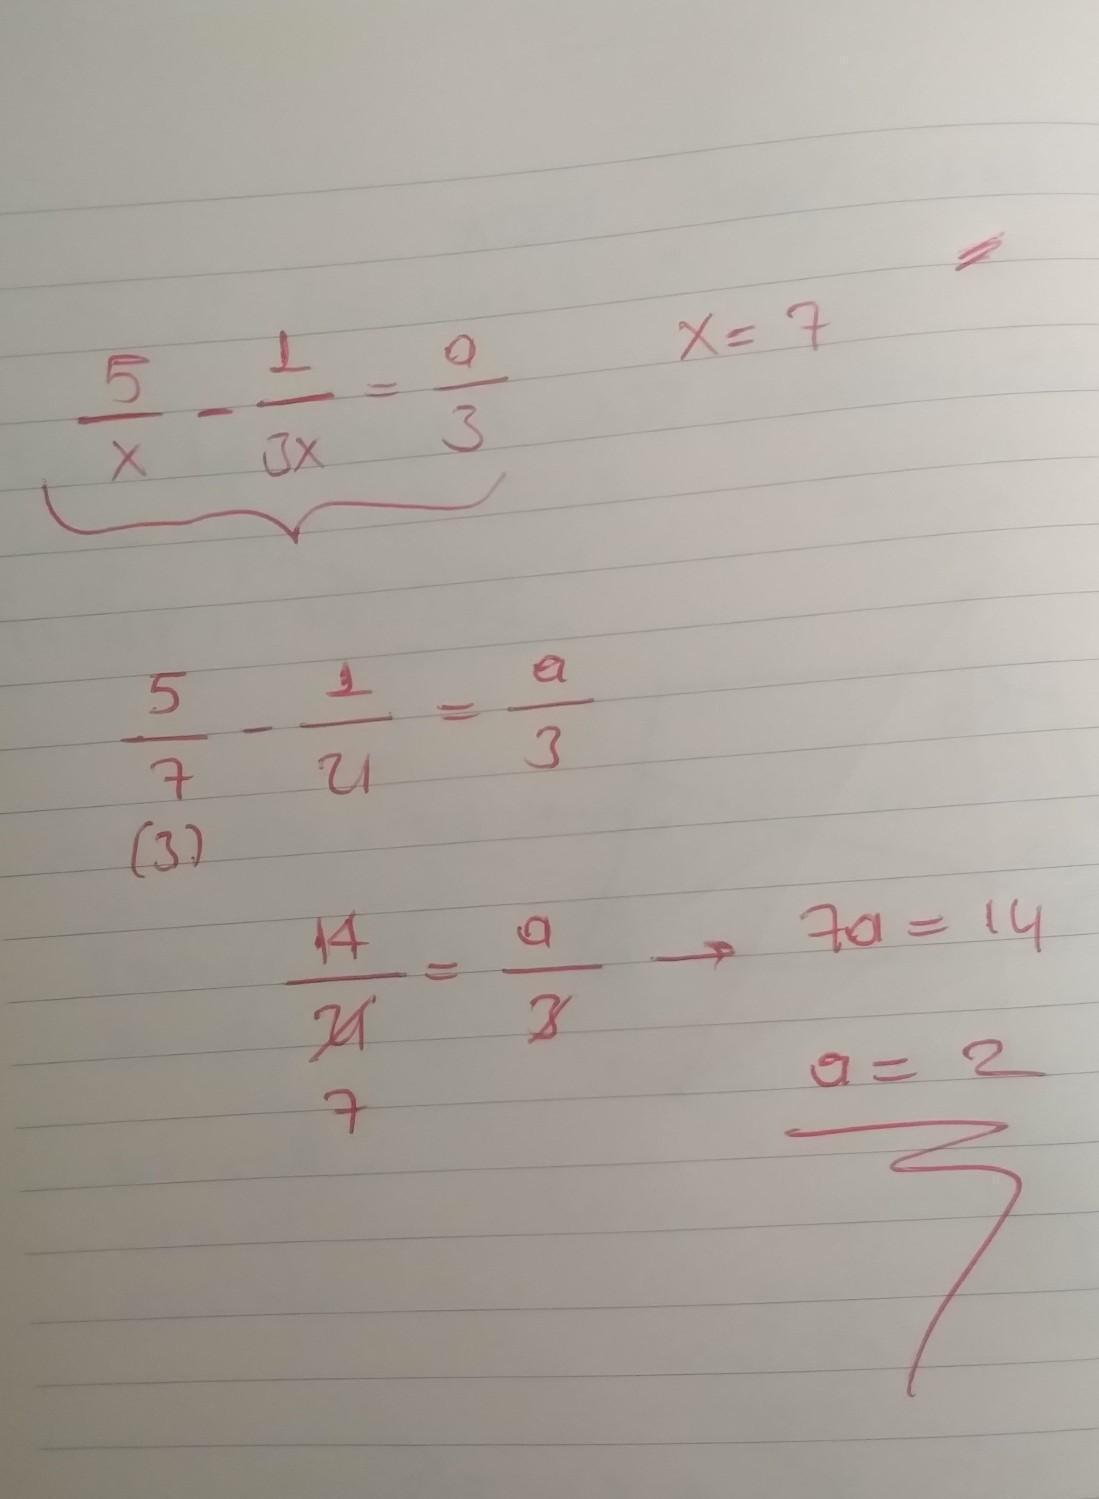 5/x - 1/3x = a/3 x = 7
5/7 - 1/21 = a/3
(3)
14/21 = a/3 → 7a = 14
7 a = 2